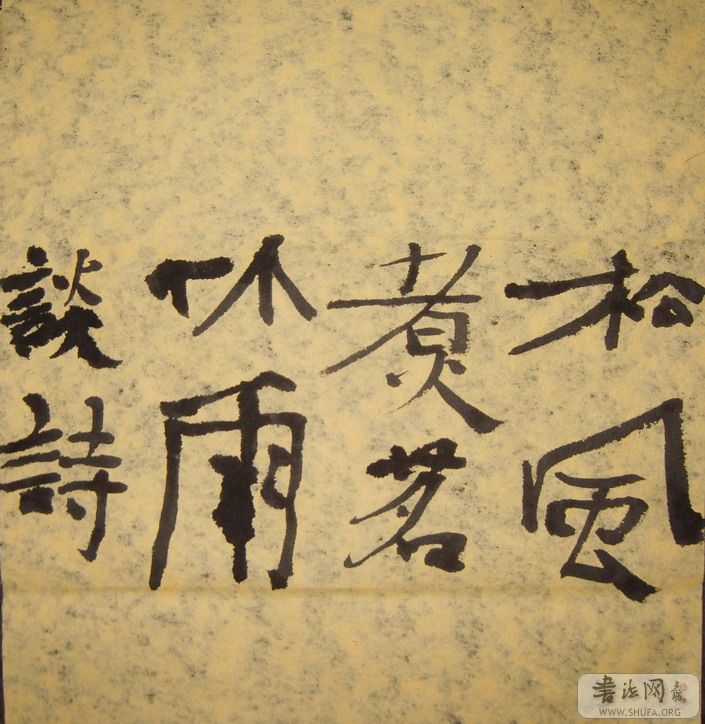 松風
煮茗
竹雨
談詩
书法网
WWW.SHUFA.ORG